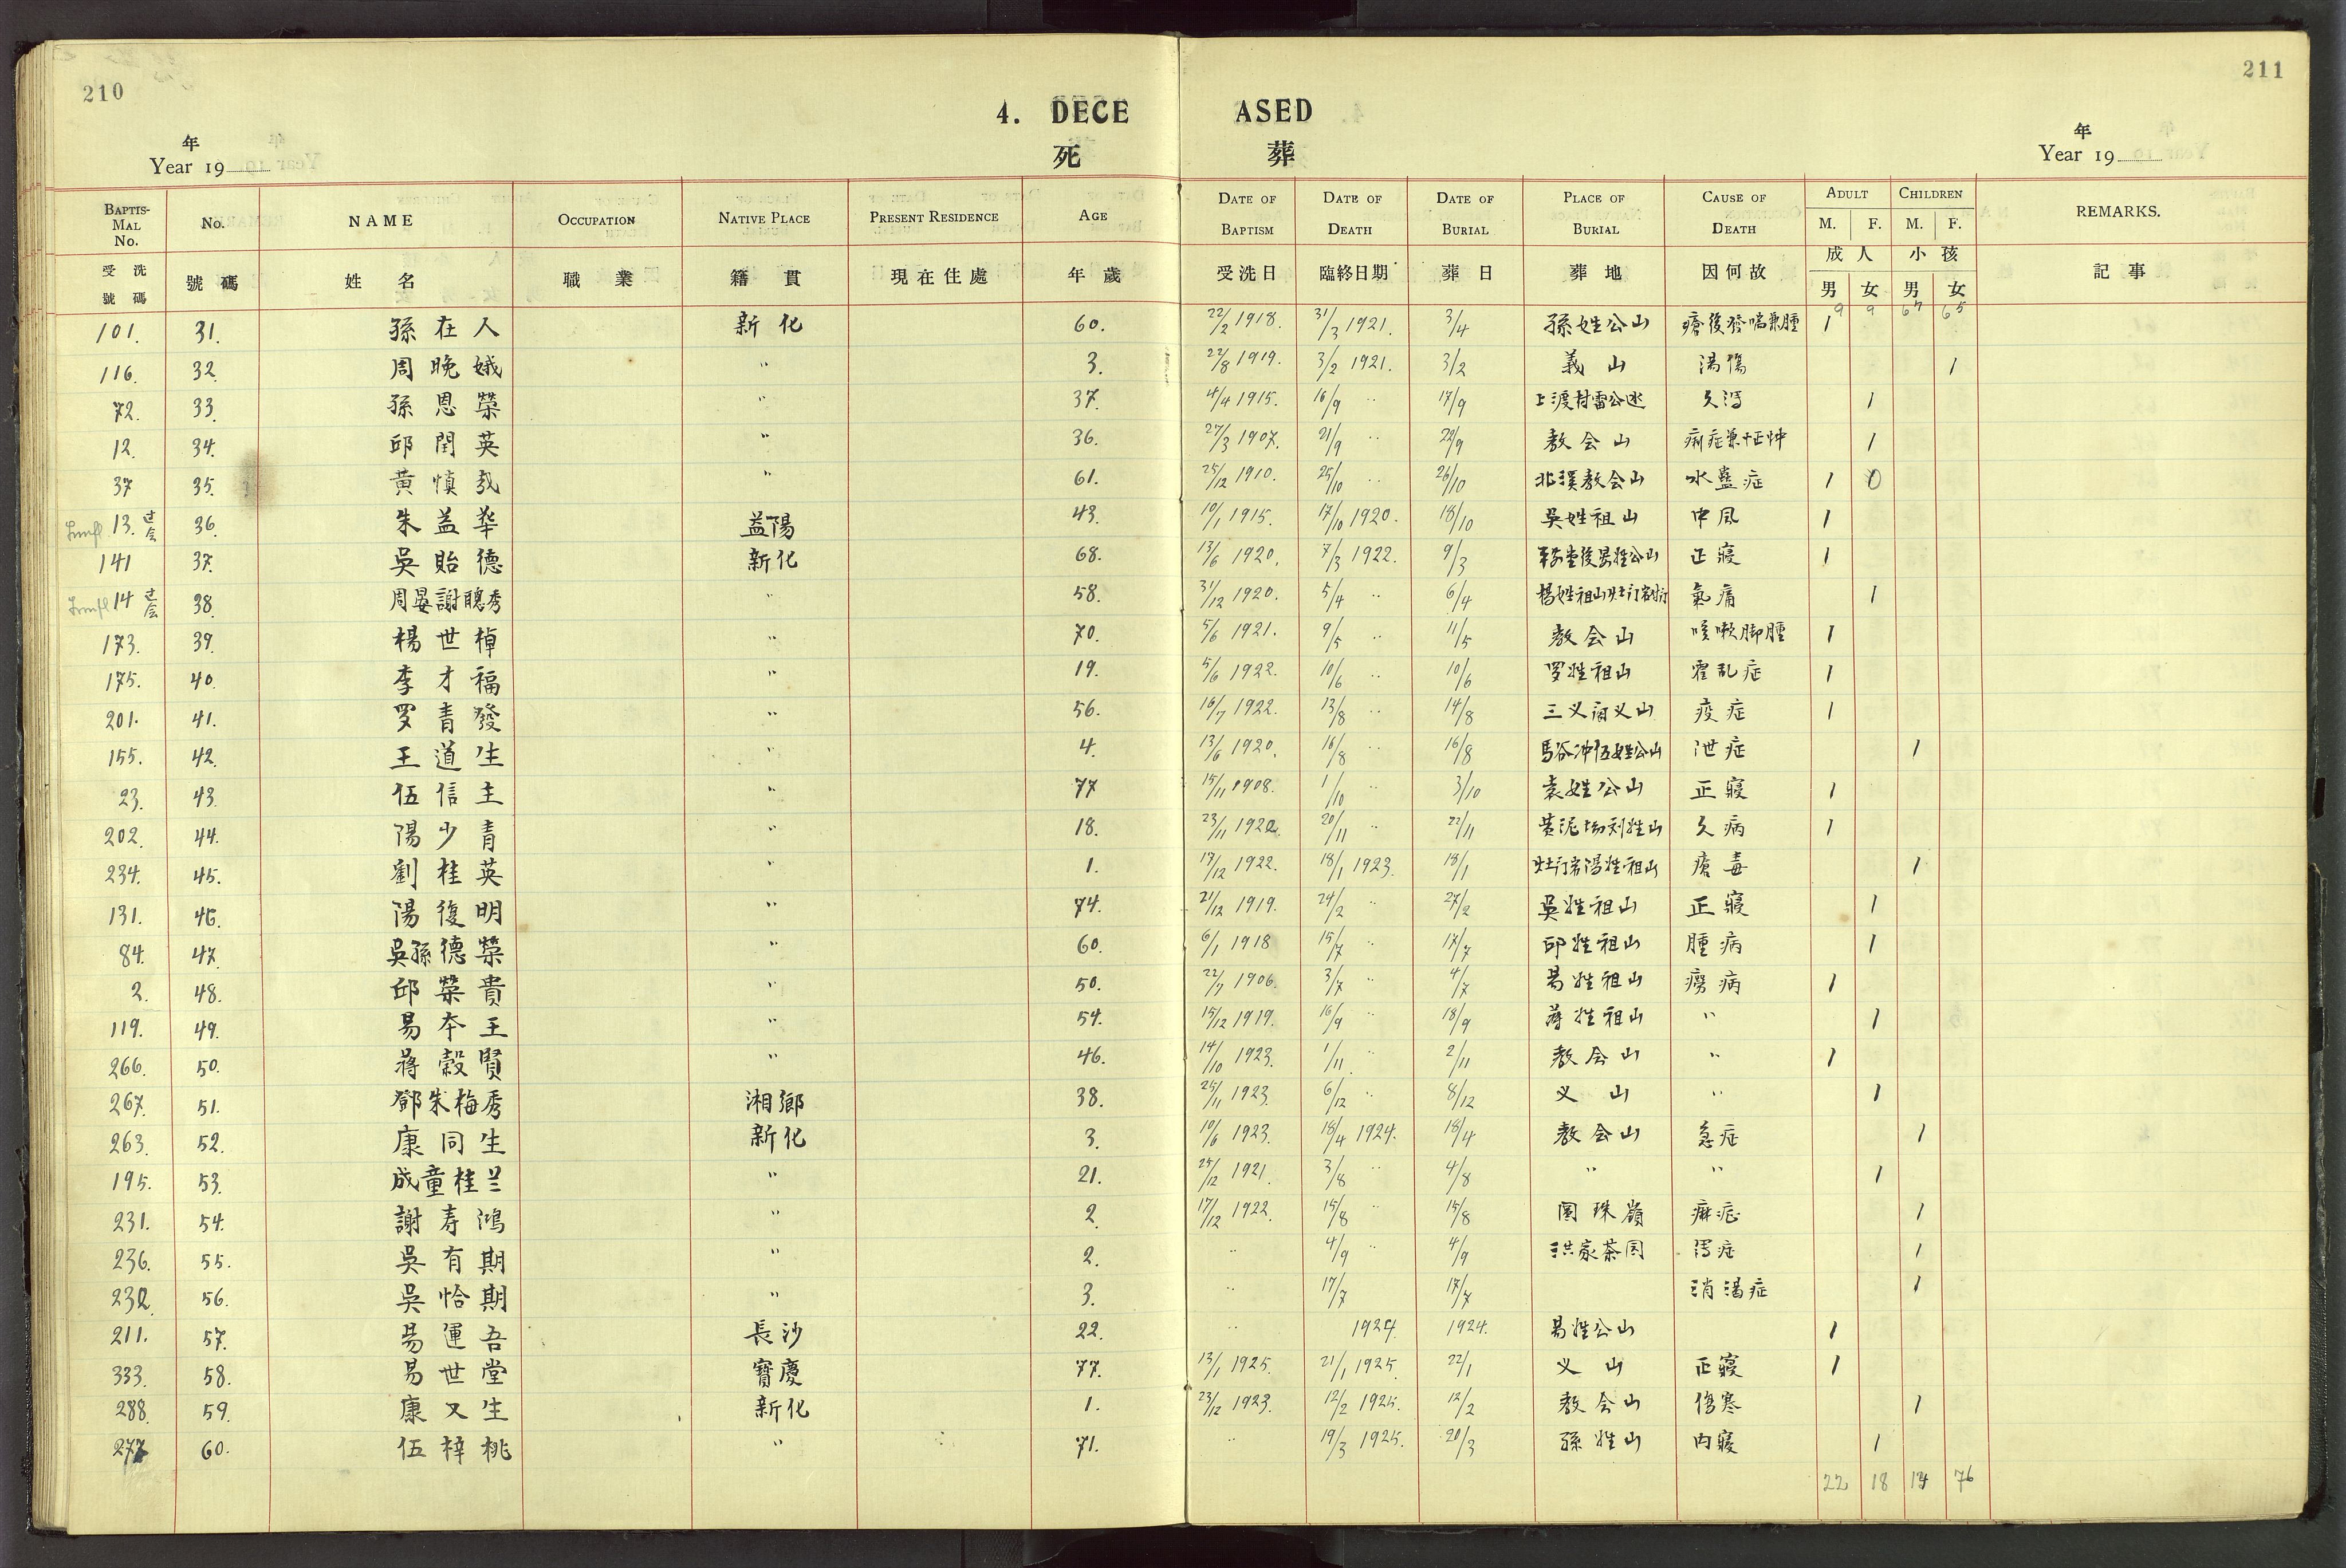 210
211
4. DECEASED
死 葬
年
Year 19
年
Year 19
BAPTISMAL No. No. NAME OCCUPATION NATIVE PLACE PRESENT RESIDENCE AGE DATE OF BAPTISM DATE OF DEATH DATE OF BURIAL PLACE OF BURIAL CAUSE OF DEATH ADULT M. F. CHILDREN M. F. REMARKS.
受洗號碼 號碼 姓名 職業 籍貫 現在住處 年歲 受洗日 臨終日期 葬日 葬地 因何故 成人 男 女 小孩 男 女 記事
9 9
101. 31. 孫在人 新化 60. 22/2 1918. 31/3 1921. 3/4 孫姓公山 1
116. 32. 周晚娥 " 3. 22/8 1919. 3/2 1921. 3/2 義山 湯傷 1
72. 33. 孫恩榮 " 37. 4/4 1915. 16/9 " 17/9 1
12. 34. 邱閏英 " 36. 27/3 1907. 21/9 " 22/9 教会山 1
37 35. 黄慎 " 61. 25/12 1910. 25/10 " 26/10 北溪教会山 水蠱症 1 0
13. 过会 36. 朱益华 益陽 43. 10/1 1915. 17/10 1920. 18/10 吳姓祖山 中風 1
141 37. 吳貽德 新化 68. 13/6 1920. 7/3 1922. 9/3 正寢 1
14 过会 38. 周晏謝聰秀 " 58. 31/12 1920. 5/4 " 6/4 楊姓祖山 氣痛 1
173. 39. 楊世棹 " 70. 5/6 1921. 9/5 " 11/5 教会山 咳嗽脚腫 1
175. 40. 李才福 " 19. 5/6 1922. 10/6 " 10/6 罗姓祖山 霍乱症 1
201. 41. 罗青發 " 56. 16/7 1922. 13/8 " 14/8 疫症 1
155. 42. 王道生 " 4. 13/6 1920. 16/8 " 16/8 馬谷冲伍姓公山 泄症 1
23. 43. 伍信主 " 77 15/11 1908. 1/10 " 3/10 袁姓公山 正寢 1
202. 44. 陽少青 " 18. 23/11 1922. 20/11 " 22/11 久病 1
234. 45. 劉桂英 " 1. 17/12 1922. 18/1 1923. 18/1 瘡毒 1
131. 46. 陽復明 " 74. 21/12 1919. 24/2 " 27/2 吳姓祖山 正寢 1
84. 47. 吳孫德榮 " 60. 6/1 1918 15/7 " 17/7 邱姓祖山 腫病 1
2. 48. 邱榮貴 " 50. 22/7 1906. 3/7 " 4/7 易姓祖山 癆病 1
119. 49. 易本王 " 54. 15/12 1919. 16/9 " 18/9 蒋姓祖山 " 1
266. 50. 蒋穀賢 " 46. 14/10 1923. 1/11 " 2/11 教会山 " 1
267. 51. 鄧朱梅秀 湘鄉 38. 25/11 1923. 6/12 " 8/12 义山 " 1
263. 52. 康同生 新化 3. 10/6 1923. 18/4 1924. 18/4 教会山 急症 1
195. 53. 成童桂兰 " 21. 25/12 1921. 3/8 " 4/8 " " 1
231. 54. 謝寿鴻 " 2. 17/12 1922. 15/8 " 15/8 圓珠嶺 1
236. 55. 吳有期 " 2. " 4/9 " 4/9 洪家茶园 瀉症 1
232. 56. 吳恰期 " 3. " 17/7 17/7 消渴症 1
211. 57. 易運吾 長沙 22. " 1924. 1924. 易姓公山 1
333. 58. 易世堂 寶慶 77. 13/1 1925. 21/1 1925. 22/1 义山 正寢 1
288. 59. 康又生 新化 1. 23/12 1923. 12/2 1925. 12/2 教会山 傷寒 1
277 60. 伍梓桃 " 71. " 19/3 1925. 20/3 孫姓山 内寢 1
22 18